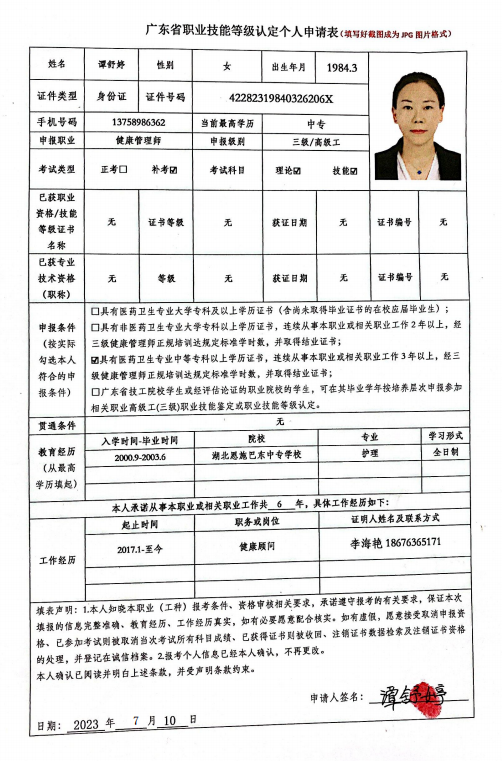 广东省职业技能等级认定个人申请表(填写好截图成为 JPG 图片格式)
姓名 谭舒婷 性别 女 出生年月 1984.3
证件类型 身份证 证件号码 42282319840326206X
手机号码 13758986362 当前最高学历 中专
申报职业 健康管理师 申报级别 三级/高级工
考试类型 正考☐ 补考☑ 考试科目 理论☑ 技能☑
已获职业
资格/技能
等级证书
名称
无 证书等级 无 获证日期 无 证书编号 无
已获专业
技术资格
(职称)
无 等级 无 获证日期 无 证书编号 无
申报条件
(按实际
勾选本人
符合的申
报条件)
☐具有医药卫生专业大学专科及以上学历证书(含尚未取得毕业证书的在校应届毕业生);
☐具有非医药卫生专业大学专科以上学历证书,连续从事本职业或相关职业工作2年以上,经
三级健康管理师正规培训达规定标准学时数,并取得结业证书;
☑具有医药卫生专业中等专科以上学历证书,连续从事本职业或相关职业工作3年以上,经三
级健康管理师正规培训达规定标准学时数,并取得结业证书;
☐广东省技工院校学生或经评估论证的职业院校的学生,可在其毕业学年按培养层次申报参加
相关职业高级工(三级)职业技能鉴定或职业技能等级认定。
贯通条件 无
教育经历
(从最高
学历填起)
入学时间-毕业时间 院校 专业 学习形式
2000.9-2003.6 湖北恩施巴东中专学校 护理 全日制
本人承诺从事本职业或相关职业工作共 6 年,具体工作经历如下:
工作经历
起止时间 职务或岗位 证明人姓名及联系方式
2017.1-至今 健康顾问 李海艳 18676365171
填表声明:1.本人知晓本职业(工种)报考条件、资格审核相关要求,承诺遵守报考的有关要求,保证本次
填报的信息完整准确、教育经历、工作经历真实,如有必要愿意配合核实。如有虚假,愿意接受取消申报资
格、已参加考试则被取消当次考试所有科目成绩、已获得证书则被收回、注销证书数据检索及注销证书资格
的处理,并登记在诚信档案。2.报考个人信息已经本人确认,不再更改。
本人确认已阅读并明白上述条款,并受声明条款约束。
申请人签名: 谭舒婷
日期: 2023 年 7 月 10 日